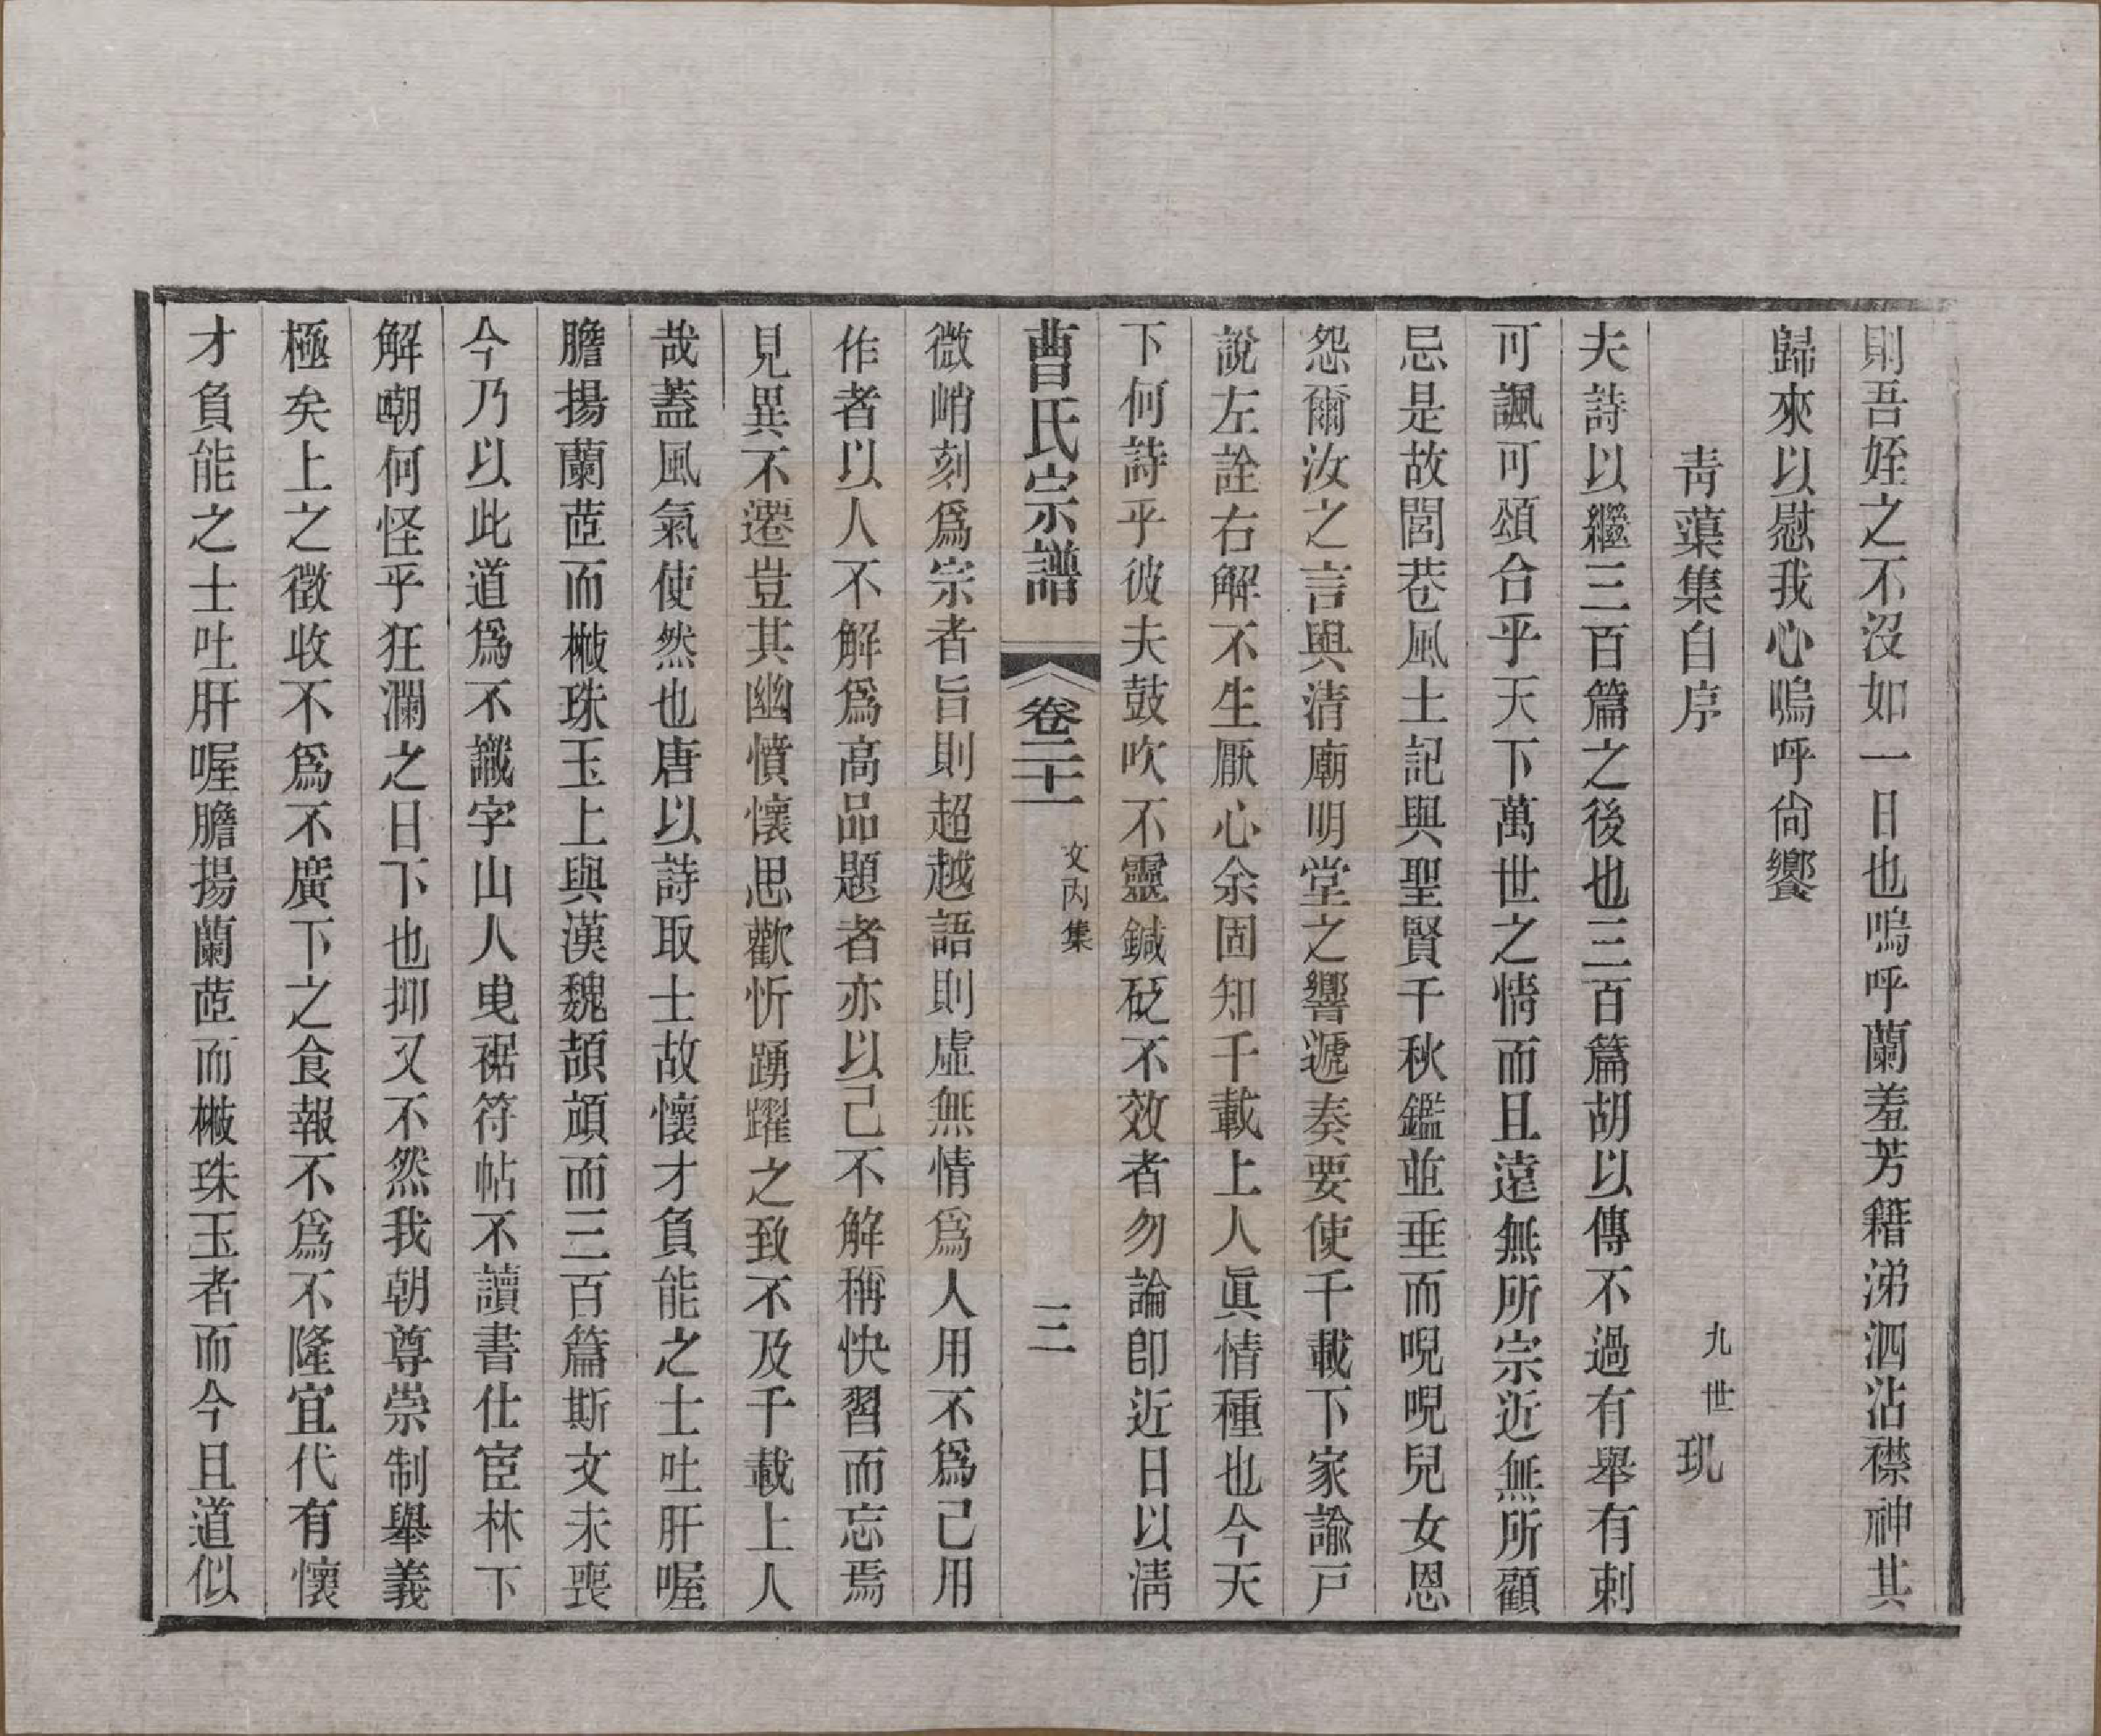 則吾姪之不沒如一日也嗚呼蘭羞芳籍涕泗沾襟神其
歸來以慰我心嗚呼尙饗
靑蕖集自序 九世 玑
夫詩以繼三百篇之後也三百篇胡以傳不過有舉有刺
可諷可頌合乎天下萬世之情而且遠無所宗近無所顧
忌是故閭巷風土記與聖賢千秋鑑並垂而呪呪兒女恩
怨爾汝之言與清廟明堂之響遞奏要使千載下家諭戸
說左詮右解不生厭心余固知千載上人眞情種也今天
下何詩乎彼夫鼓吹不靈鍼砭不效者勿論卽近日以淸
曹氏宗譜 卷二十一 文內集 三
微峭刻爲宗者旨則超越語則虛無情爲人用不爲己用
作者以人不解爲高品題者亦以己不解稱快習而忘焉
見異不遷豈其幽憤懷思歡忻踴躍之致不及千載上人
哉蓋風氣使然也唐以詩取士故懷才負能之士吐肝喔
膽揚蘭茝而樾珠玉上與漢魏頡頏而三百篇斯文未喪
今乃以此道爲不識字山人曳裾符帖不讀書仕宦林下
解嘲何怪乎狂瀾之日下也抑又不然我朝尊崇制舉義
極矣上之徵收不爲不廣下之食報不爲不隆宜代有懷
才負能之士吐肝喔膽揚蘭茝而樾珠玉者而今且道似